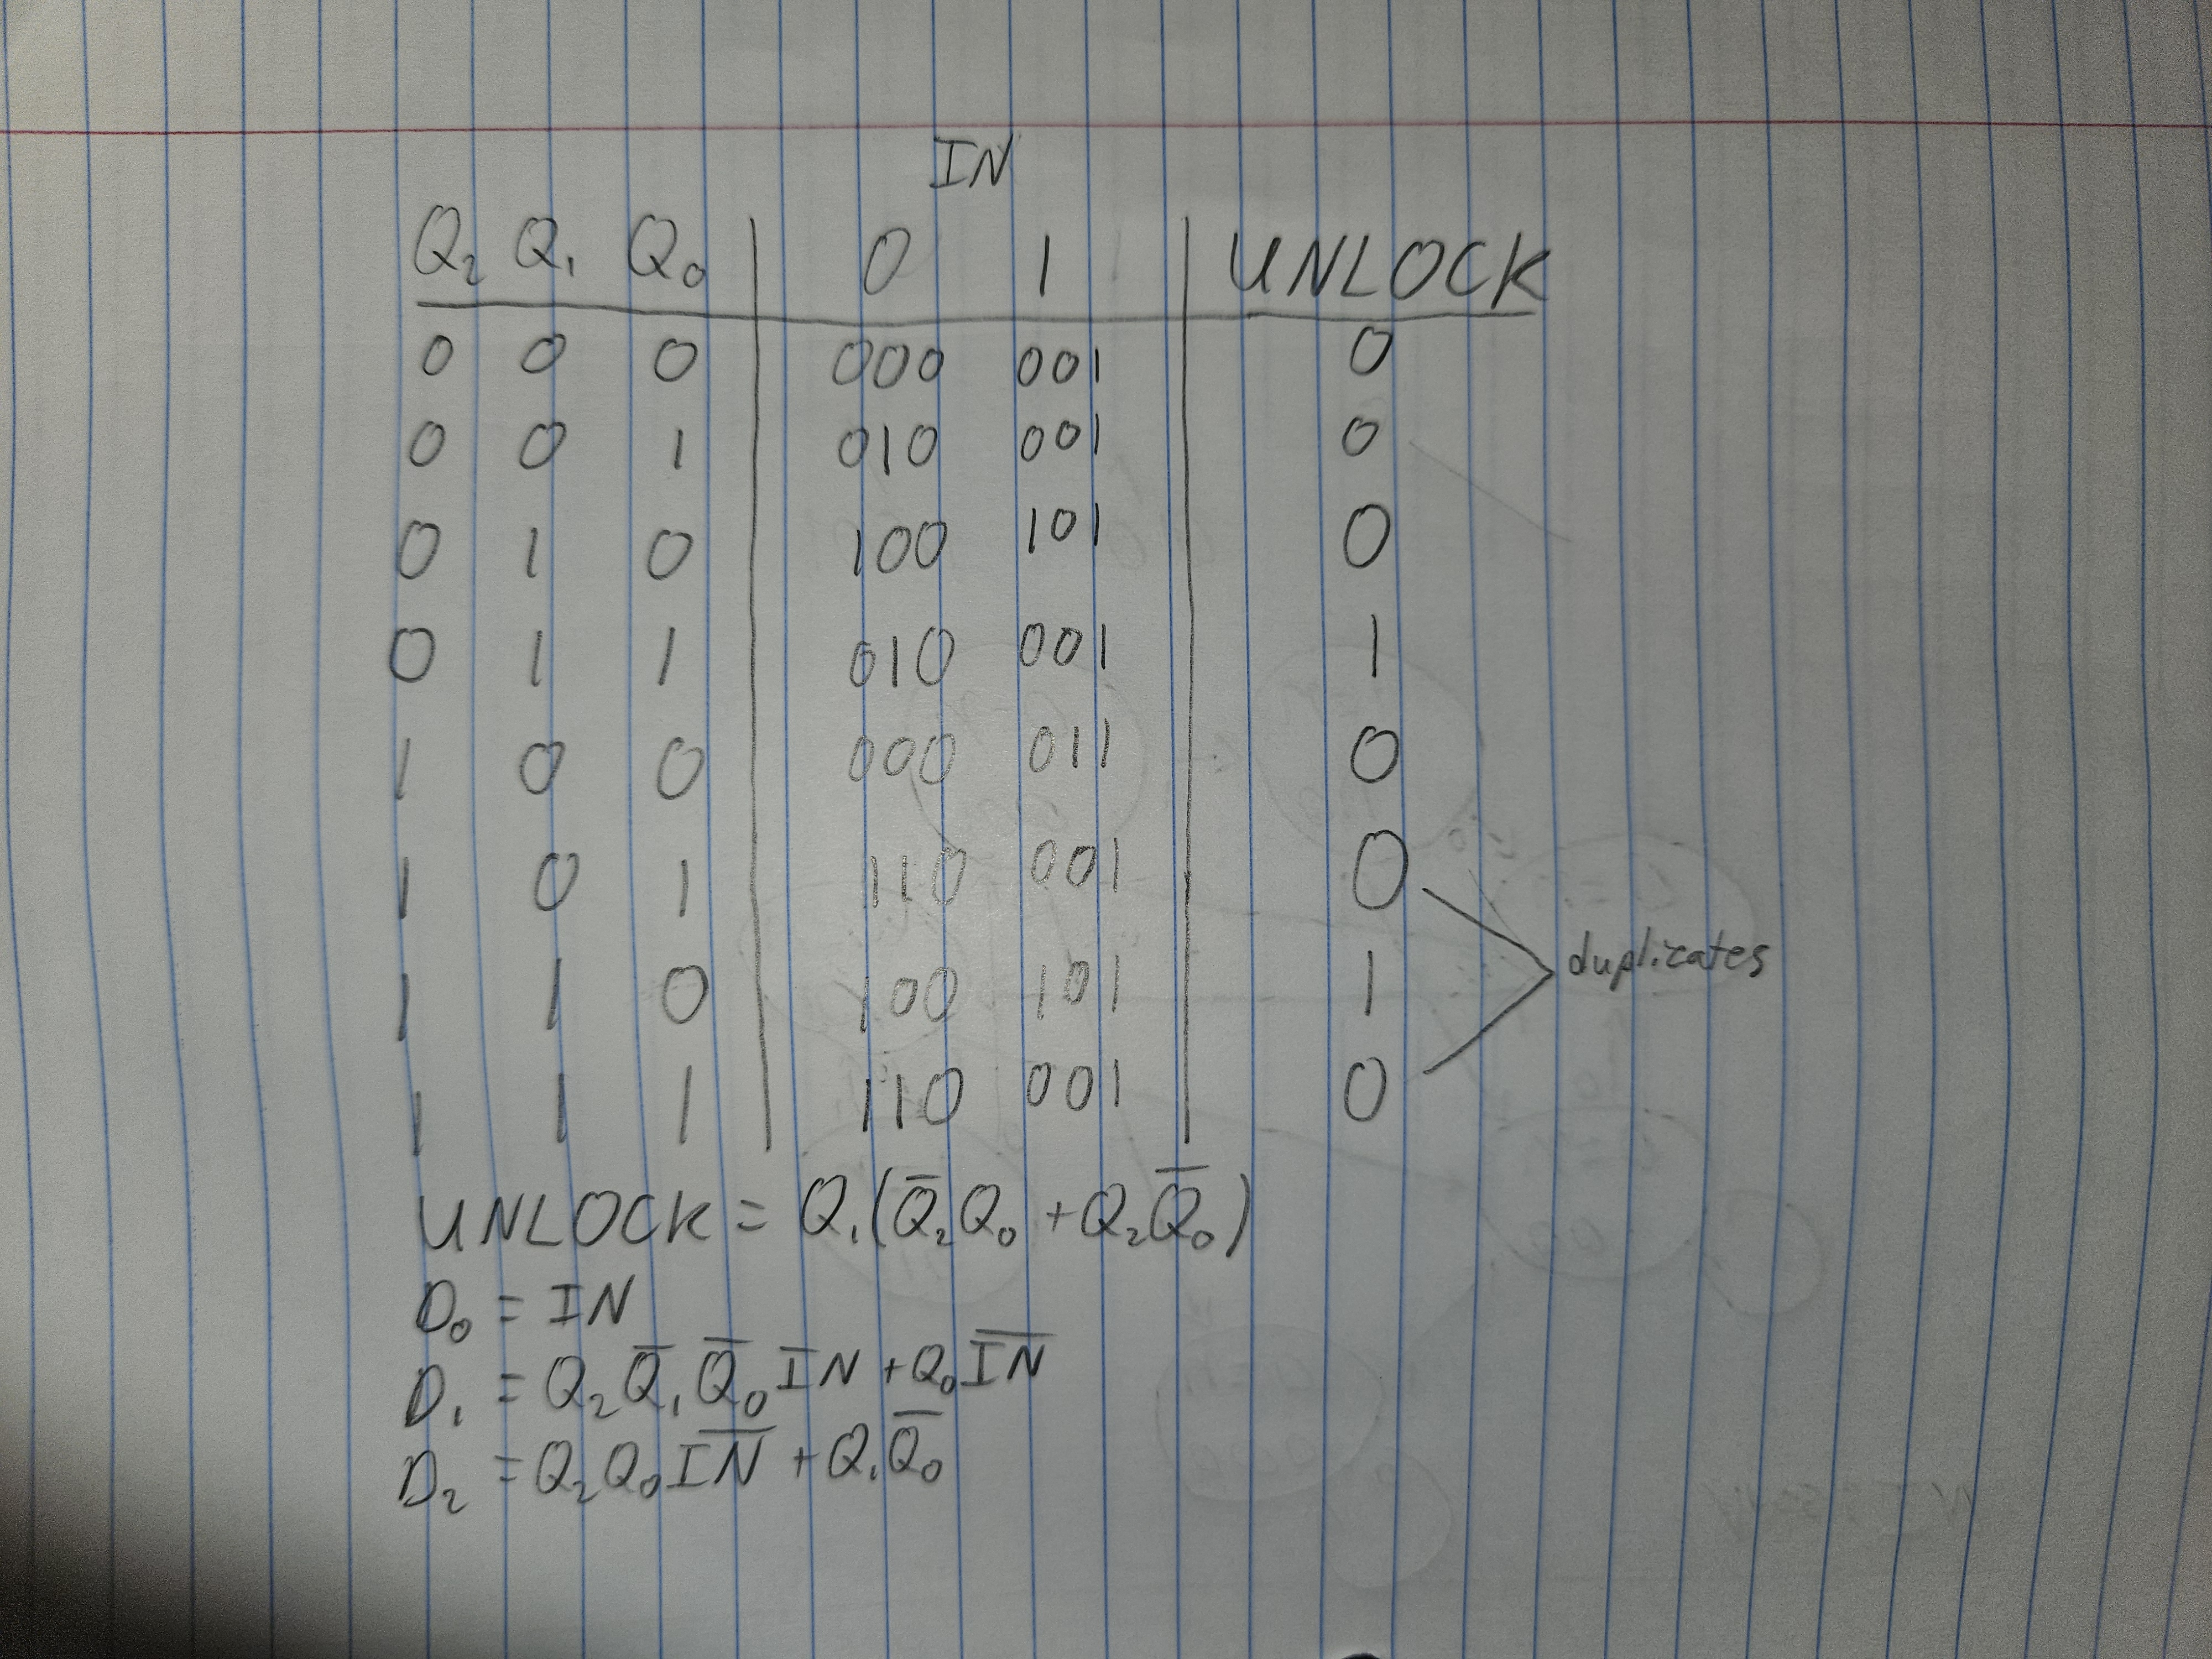 IN
Q₂ Q₁ Q₀ 0 1 UNLOCK
0 0 0 000 001 0
0 0 1 010 001 0
0 1 0 100 101 0
0 1 1 010 001 1
1 0 0 000 011 0
1 0 1 110 001 0
duplicates
1 1 0 100 101 1
1 1 1 110 001 0
UNLOCK = Q₁(Q̅₂Q₀ + Q₂Q̅₀)
D₀ = IN
D₁ = Q₂Q̅₁Q̅₀IN + Q₀I̅N̅
D₂ = Q₂Q₀I̅N̅ + Q₁Q̅₀